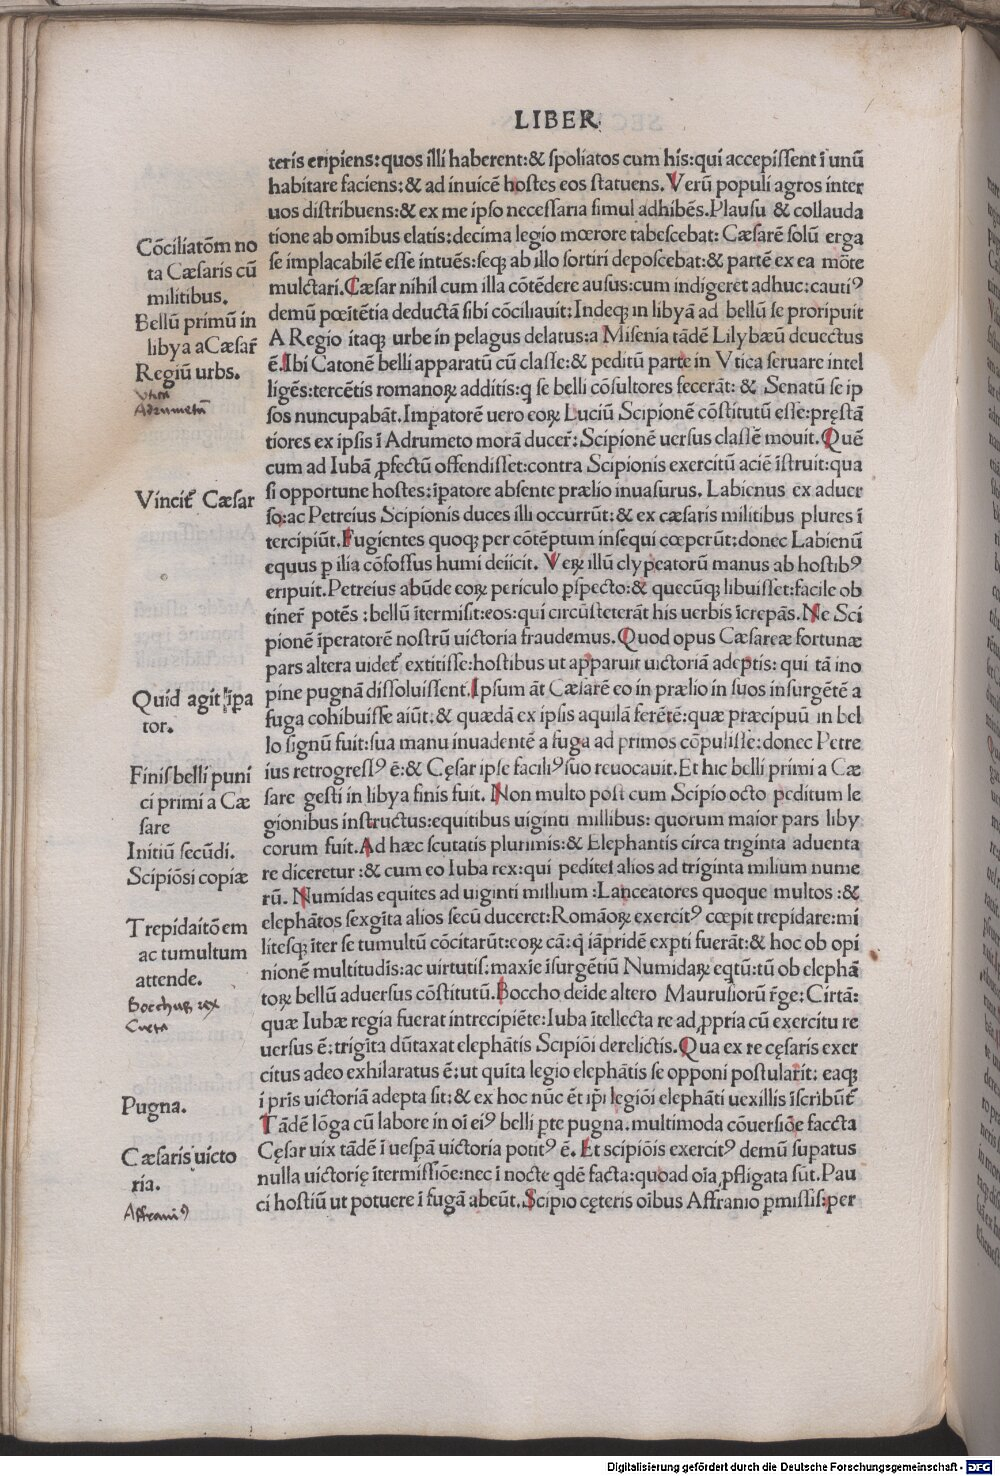 LIBER
teris eripiens:quos illi haberent:& spoliatos cum his:qui accepissent ī unū
habitare faciens:& ad inuicē hostes eos statuens.Verū populi agros inter
uos distribuens:& ex me ipso necessaria simul adhibēs.Plausu & collauda
tione ab omībus elatis:decima legio mœrore tabescebat:Cæsarē solū erga
se implacabilē esse intuēs:seqꝫ ab illo sortiri deposcebat:& partē ex ea mōre
mulctari.Cæsar nihil cum illa cōtēdere ausus:cum indigeret adhuc:cautiꝰ
demū pœitētia deductā sibi cōciliauit:Indeqꝫ in libyā ad bellū se proripuit
A Regio itaqꝫ urbe in pelagus delatus:a Misenia tādē Lilybæū deuectus
ē.Ibi Catonē belli apparatū cū classe:& peditū parte in Vtica seruare intel
ligēs:tercētis romanoꝝ additis:q se belli cōsultores fecerāt: & Senatū se ip
sos nuncupabāt.Impatorē uero eoꝝ Luciū Scipionē cōstitutū esse:pręstā
tiores ex ipsis ī Adrumeto morā ducer̄:Scipionē uersus classē mouit.Quē
cum ad Iubā ꝓfectū offendisset:contra Scipionis exercitū aciē īstruit:qua
si opportune hostes:īpatore absente prælio inuasurus.Labienus ex aduer
so:ac Petreius Scipionis duces illi occurrūt:& ex cæsaris militibus plures ī
tercipiūt.Fugientes quoqꝫ per cōtēptum insequi cœperūt:donec Labienū
equus p ilia cōfossus humi deiicit. Veꝝ illū clypeatorū manus ab hostibꝰ
eripuit.Petreius abūde eoꝝ periculo pspecto:& quecūqꝫ libuisset:facile ob
tiner̄ potēs :bellū itermisit:eos:qui circūsteterāt his uerbis īcrepās.Ne Sci
pionē īperatorē nostrū uictoria fraudemus.Quod opus Cæsareæ fortunæ
pars altera uidet̄ extitisse:hostibus ut apparuit uictoriā adeptis: qui tā ino
pine pugnā dissoluissent.Ipsum āt Cæsarē eo in prælio in suos insurgētē a
fuga cohibuisse aiūt:& quædā ex ipsis aquilā ferētē:quæ præcipuū in bel
lo signū fuit:sua manu inuadentē a fuga ad primos cōpulisse:donec Petre
ius retrogressꝰ ē:& Cęsar ipse faciliꝰ suo reuocauit.Et hic belli primi a Cæ
sare gesti in libya finis fuit. Non multo post cum Scipio octo peditum le
gionibus instructus:equitibus uiginti millibus: quorum maior pars liby
corum fuit.Ad hæc scutatis plurimis:& Elephantis circa triginta aduenta
re diceretur :& cum eo Iuba rex:qui peditet alios ad triginta milium nume
rū. Numidas equites ad uiginti millium :Lanceatores quoque multos :&
elephātos sexgīta alios secū duceret:Romāoꝝ exercitꝰ cœpit trepidare:mi
litesqꝫ īter se tumultū cōcitarūt:eoꝝ cā:q iāpridē expti fuerāt:& hoc ob opi
nionē multitudis:ac uirtutis:maxie īsurgētiū Numidaꝝ eqtū:tū ob elephā
toꝝ bellū aduersus cōstitutū.Boccho deide altero Maurusiorū r̄ge:Cirtā:
quæ Iubæ regia fuerat intrecipiēte:Iuba ītellecta re ad ꝓpria cū exercitu re
uersus ē:trigīta dūtaxat elephātis Scipiōi derelictis.Qua ex re cęsaris exer
citus adeo exhilaratus ē:ut quīta legio elephātis se opponi postularit: eaqꝫ
ī pris uictoriā adepta sit:& ex hoc nūc ēt ip̄i legiōi elephāti uexillis īscribūt̄
Tādē lōga cū labore in oī eiꝰ belli pte pugna.multimoda cōuersiōe faccta
Cęsar uix tādē ī uespā uictoria potitꝰ ē. Et scipiōis exercitꝰ demū supatus
nulla uictorię ītermissiōe:nec ī nocte qdē facta:quoad oīa ꝓfligata sūt.Pau
ci hostiū ut potuere ī fugā abeūt.Scipio cęteris oībus Affranio pmissis:per
Cōciliatōm no
ta Cæsaris cū
militibus.
Bellū primū in
libya aCæsar̄
Regiū urbs.
Vtica
Adrumetū
Vincit̄ Cæsar
Quid agit īpa
tor.
Finis belli puni
ci primi a Cæ
sare
Initiū secūdi.
Scipiōsi copiæ
Trepidaitōem
ac tumultum
attende.
Bocchus rex
Pugna.
Cæsaris uicto
ria.
Affraniꝰ
Digitalisierung gefördert durch die Deutsche Forschungsgemeinschaft - DFG